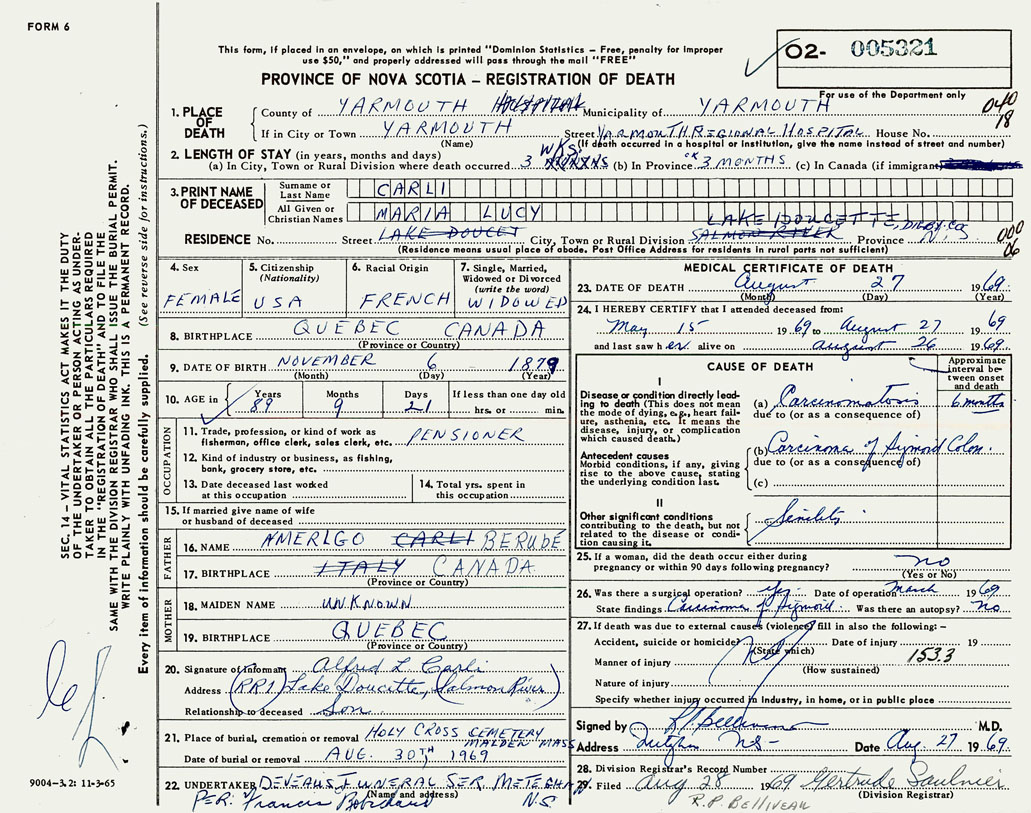 FORM 6
This form, if placed in an envelope, on which is printed "Dominion Statistics – Free, penalty for improper
use $50," and properly addressed will pass through the mail "FREE"
PROVINCE OF NOVA SCOTIA – REGISTRATION OF DEATH
O2- 005321
For use of the Department only
040
18
1. PLACE OF DEATH
County of YARMOUTH HOSPITAL Municipality of YARMOUTH
If in City or Town YARMOUTH Street YARMOUTH REGIONAL HOSPITAL House No.
(Name) (If death occurred in a hospital or institution, give the name instead of street and number)
2. LENGTH OF STAY (in years, months and days)
(a) In City, Town or Rural Division where death occurred 3 WKS. (b) In Province 3 MONTHS (c) In Canada (if immigrant)
3. PRINT NAME OF DECEASED
Surname or Last Name CARLI
All Given or Christian Names MARIA LUCY
LAKE DOUCETTE, DIGBY CO
RESIDENCE No. Street LAKE DOUCET City, Town or Rural Division SALMON RIVER Province N.S
(Residence means usual place of abode. Post Office Address for residents in rural parts not sufficient)
000
06
4. Sex FEMALE
5. Citizenship (Nationality) USA
6. Racial Origin FRENCH
7. Single, Married, Widowed or Divorced (write the word) WIDOWED
8. BIRTHPLACE QUEBEC CANADA
(Province or Country)
9. DATE OF BIRTH NOVEMBER 6 1879
(Month) (Day) (Year)
10. AGE in Years 89 Months 9 Days 21 If less than one day old hrs. or min.
OCCUPATION
11. Trade, profession, or kind of work as fisherman, office clerk, sales clerk, etc. PENSIONER
12. Kind of industry or business, as fishing, bank, grocery store, etc.
13. Date deceased last worked at this occupation
14. Total yrs. spent in this occupation
15. If married give name of wife or husband of deceased
FATHER
16. NAME AMERIGO CARLI BERUBE
17. BIRTHPLACE ITALY CANADA
(Province or Country)
MOTHER
18. MAIDEN NAME UNKNOWN
19. BIRTHPLACE QUEBEC
(Province or Country)
20. Signature of Informant Alfred L Carli
Address (RR1) Lake Doucette, (Salmon River)
Relationship to deceased Son
21. Place of burial, cremation or removal HOLY CROSS CEMETERY
MALDEN MASS
Date of burial or removal AUG. 30TH 1969
22. UNDERTAKER DEVEAU'S FUNERAL SER. METEGHAN
(Name and address) N.S.
PER: Francis
MEDICAL CERTIFICATE OF DEATH
23. DATE OF DEATH August 27 1969.
(Month) (Day) (Year)
24. I HEREBY CERTIFY that I attended deceased from:
May 15 1969 to August 27 1969
and last saw her alive on August 26 1969
CAUSE OF DEATH
Approximate interval between onset and death
I
Disease or condition directly leading to death (This does not mean the mode of dying, e.g., heart failure, asthenia, etc. It means the disease, injury, or complication which caused death.)
(a) Carcinomatosis 6 months
due to (or as a consequence of)
Antecedent causes
Morbid conditions, if any, giving rise to the above cause, stating the underlying condition last.
(b) Carcinoma of Sigmoid Colon.
due to (or as a consequence of)
(c)
II
Other significant conditions contributing to the death, but not related to the disease or condition causing it.
25. If a woman, did the death occur either during pregnancy or within 90 days following pregnancy? no
(Yes or No)
26. Was there a surgical operation? yes Date of operation March 1969
State findings Carcinoma of Sigmoid Was there an autopsy? no
27. If death was due to external causes (violence) fill in also the following: –
Accident, suicide or homicide? Date of injury 19
(State which) 153.3
Manner of injury
(How sustained)
Nature of injury
Specify whether injury occurred in industry, in home, or in public place
Signed by M.D.
Address NS- Date Aug. 27 1969.
28. Division Registrar's Record Number
29. Filed Aug 28 1969 Gertrude Saulnier
(Division Registrar)
R.P. BELLIVEAU
SEC. 14 – VITAL STATISTICS ACT MAKES IT THE DUTY
OF THE UNDERTAKER OR PERSON ACTING AS UNDER-
TAKER TO OBTAIN ALL THE PARTICULARS REQUIRED
IN THE "REGISTRATION OF DEATH" AND TO FILE THE
SAME WITH THE DIVISION REGISTRAR WHO SHALL ISSUE THE BURIAL PERMIT.
WRITE PLAINLY WITH UNFADING INK. THIS IS A PERMANENT RECORD.
Every item of information should be carefully supplied. (See reverse side for instructions.)
9004-3.2: 11-3-65